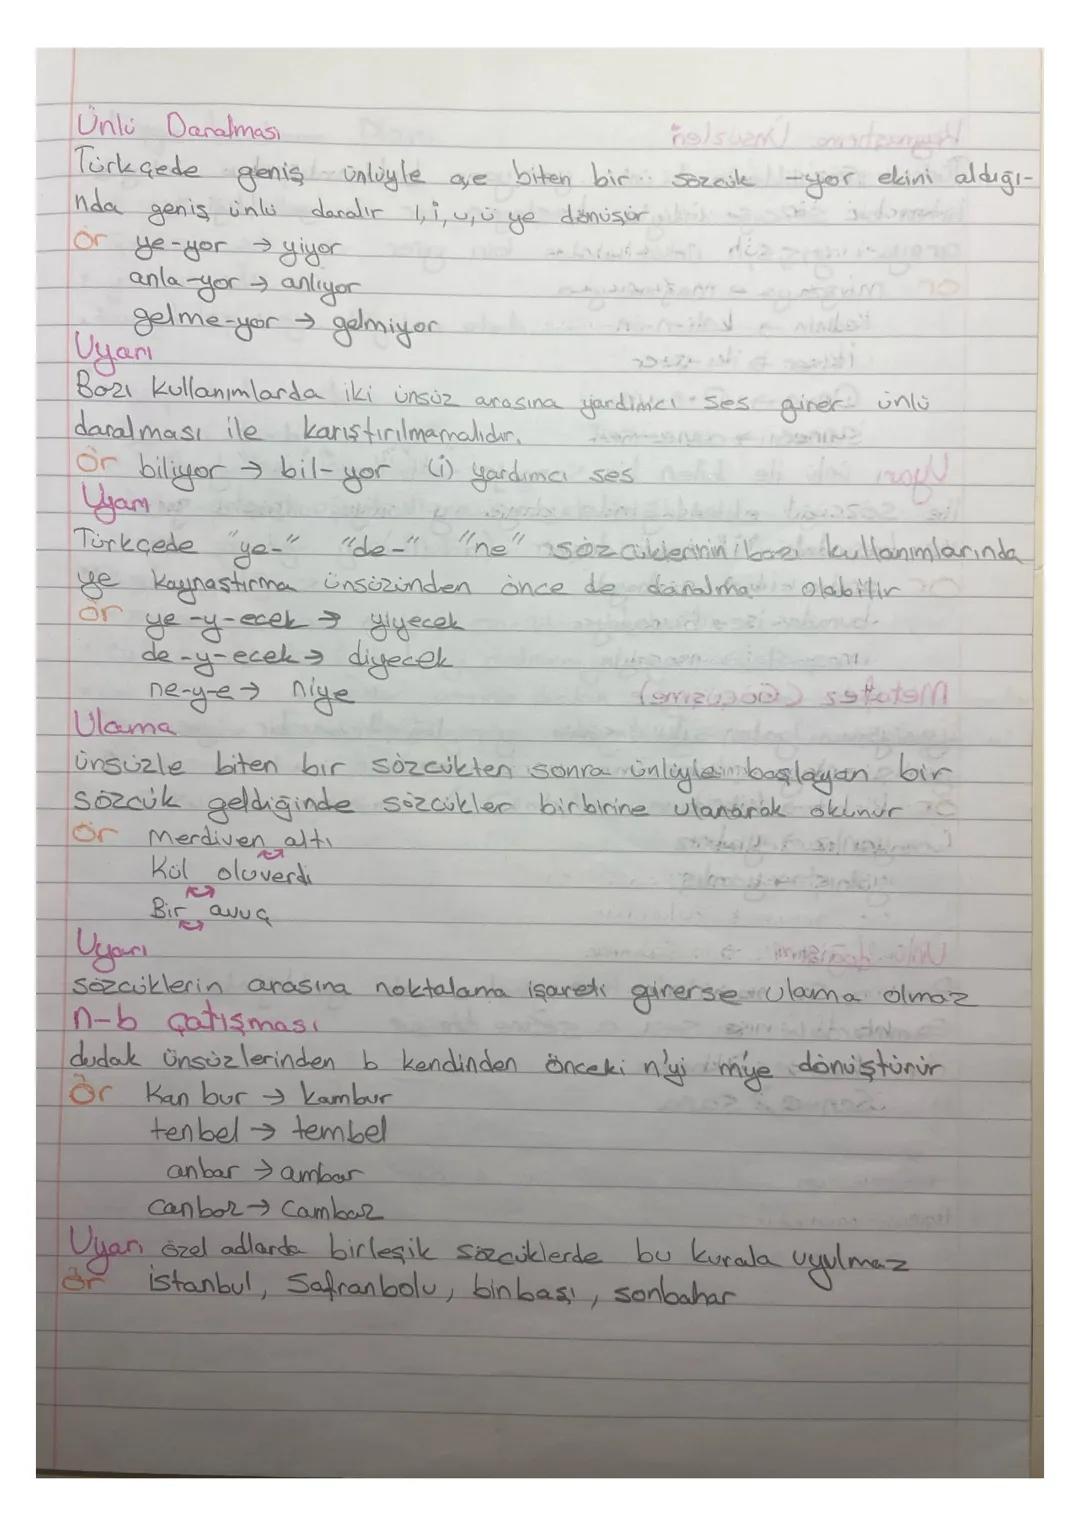 Ünlü Daralması
Türkçede geniş ünlüyle a,e biten bir sözcük -yor ekini aldığı-
nda geniş ünlü daralır ı,i,u,ü ye dönüşür
Ör ye-yor → yiyor
anla-yor → anlıyor
gelme-yor → gelmiyor
Uyarı
Bazı kullanımlarda iki ünsüz arasına yardımcı ses girer ünlü
daralması ile karıştırılmamalıdır.
Ör biliyor → bil-yor (i) yardımcı ses
Uyarı
Türkçede "ye-" "de-" "ne" sözcüklerinin bazı kullanımlarında
ye kaynaştırma ünsüzünden önce de daralma olabilir
Ör ye-y-ecek → yiyecek
de-y-ecek → diyecek
ne-y-e → niye
Ulama
ünsüzle biten bir sözcükten sonra ünlüyle başlayan bir
sözcük geldiğinde sözcükler birbirine ulanarak okunur
Ör Merdiven altı
Kül oluverdi
Bir avuç
Uyarı
sözcüklerin arasına noktalama işareti girerse ulama olmaz
n-b çatışması
dudak ünsüzlerinden b kendinden önceki n'yi m'ye dönüştürür
Ör Kan bur → kambur
tenbel → tembel
anbar → ambar
canbaz → Cambaz
Uyarı özel adlarda birleşik sözcüklerde bu kurala uyulmaz
Ör istanbul, Safranbolu, binbaşı, sonbahar